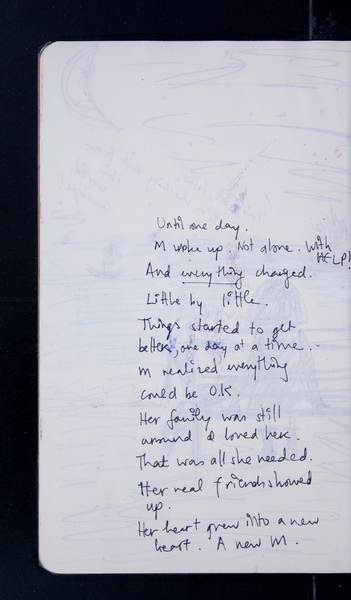 Until one day.
M woke up. Not alone. With HELP!
And everything changed.
Little by little.
Things started to get
better, one day at a time..
M realized everything
could be O.K.
Her family was still
around & loved her.
That was all she needed.
Her real friends showed
up.
Her heart grew into a new
heart. A new M.